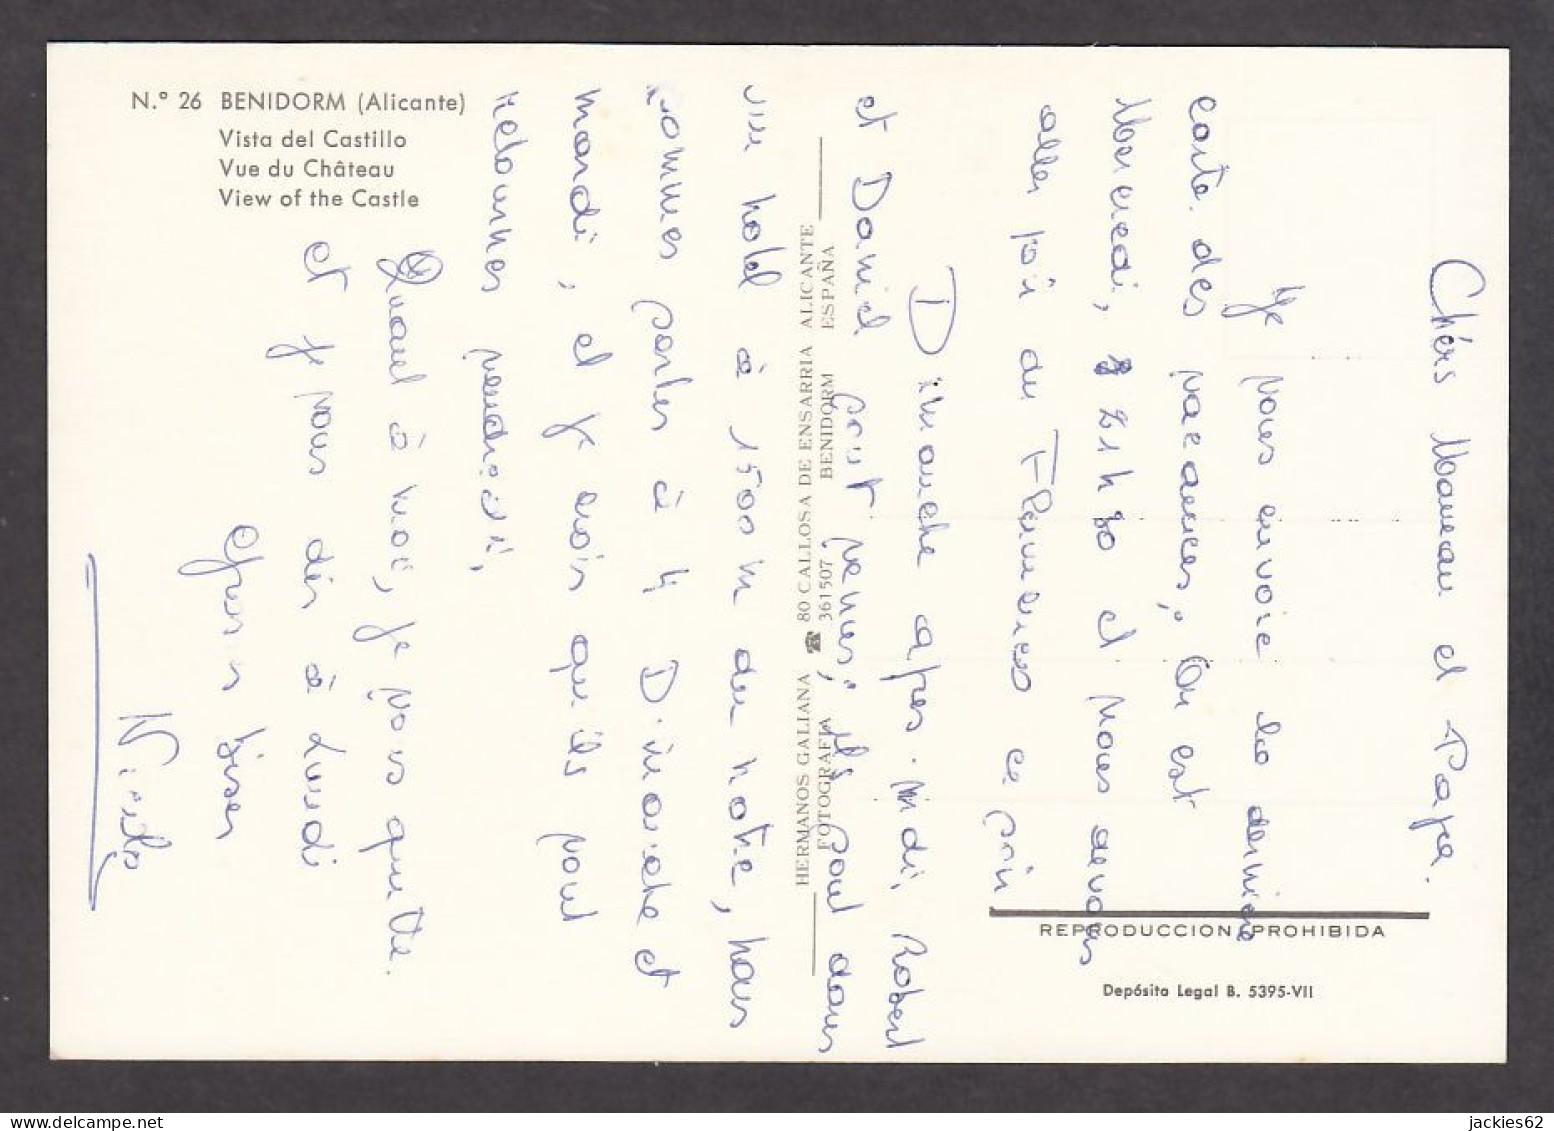 N.º 26 BENIDORM (Alicante)
Vista del Castillo
Vue du Château
View of the Castle
HERMANOS GALIANA ☎ 80 CALLOSA DE ENSARRIA ALICANTE
FOTOGRAFIA 361507 BENIDORM ESPAÑA
REPRODUCCION PROHIBIDA
Depósito Legal B. 5395-VII
Chéris Maman et Papa.
Je vous envoie la dernière
carte des vacances. On est
Mercredi, 21h30 et nous devons
aller voir du Flamenco
Dimanche apres-midi, Robert
et Daniel sont venus, ils sont dans
un hotel à 1500 m du notre, nous
sommes partis à 4 Dimanche et
mardi, et je crois qu'ils vont
retourner vendredi,
Quand à moi, je vous quitte.
et je vous dis à Lundi
Gros bises
jackies62